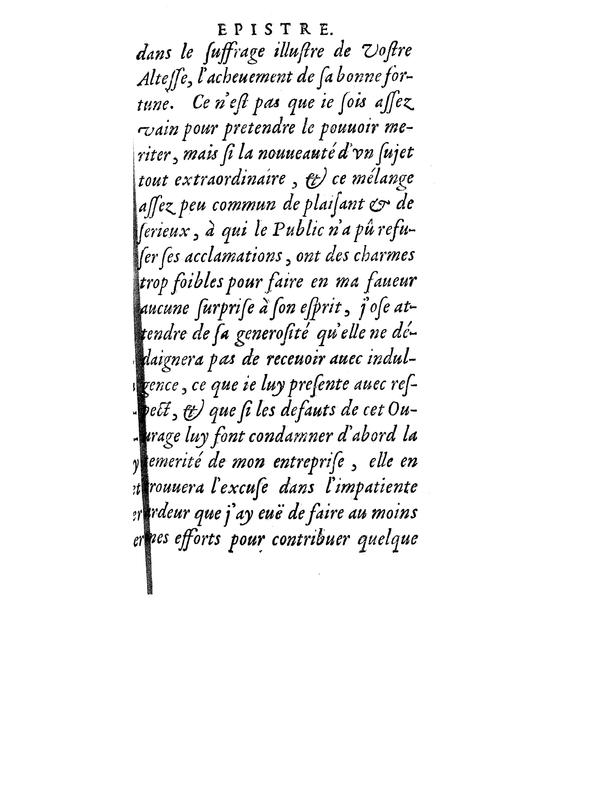 EPISTRE.
dans le ſuffrage illuſtre de Voſtre
Alteſſe, l'acheuement de ſa bonne for-
tune. Ce n'eſt pas que ie ſois aſſez
vain pour pretendre le pouuoir me-
riter, mais ſi la nouueauté d'vn ſujet
tout extraordinaire, & ce mélange
aſſez peu commun de plaiſant & de
ſerieux, à qui le Public n'a pû refu-
ſer ſes acclamations, ont des charmes
trop foibles pour faire en ma faueur
aucune ſurpriſe à ſon eſprit, j'oſe at-
tendre de ſa generoſité qu'elle ne dé-
daignera pas de receuoir auec indul-
gence, ce que ie luy preſente auec reſ-
pect, & que ſi les defauts de cet Ou-
urage luy font condamner d'abord la
temerité de mon entrepriſe, elle en
trouuera l'excuſe dans l'impatiente
ardeur que j'ay euë de faire au moins
mes efforts pour contribuer quelque